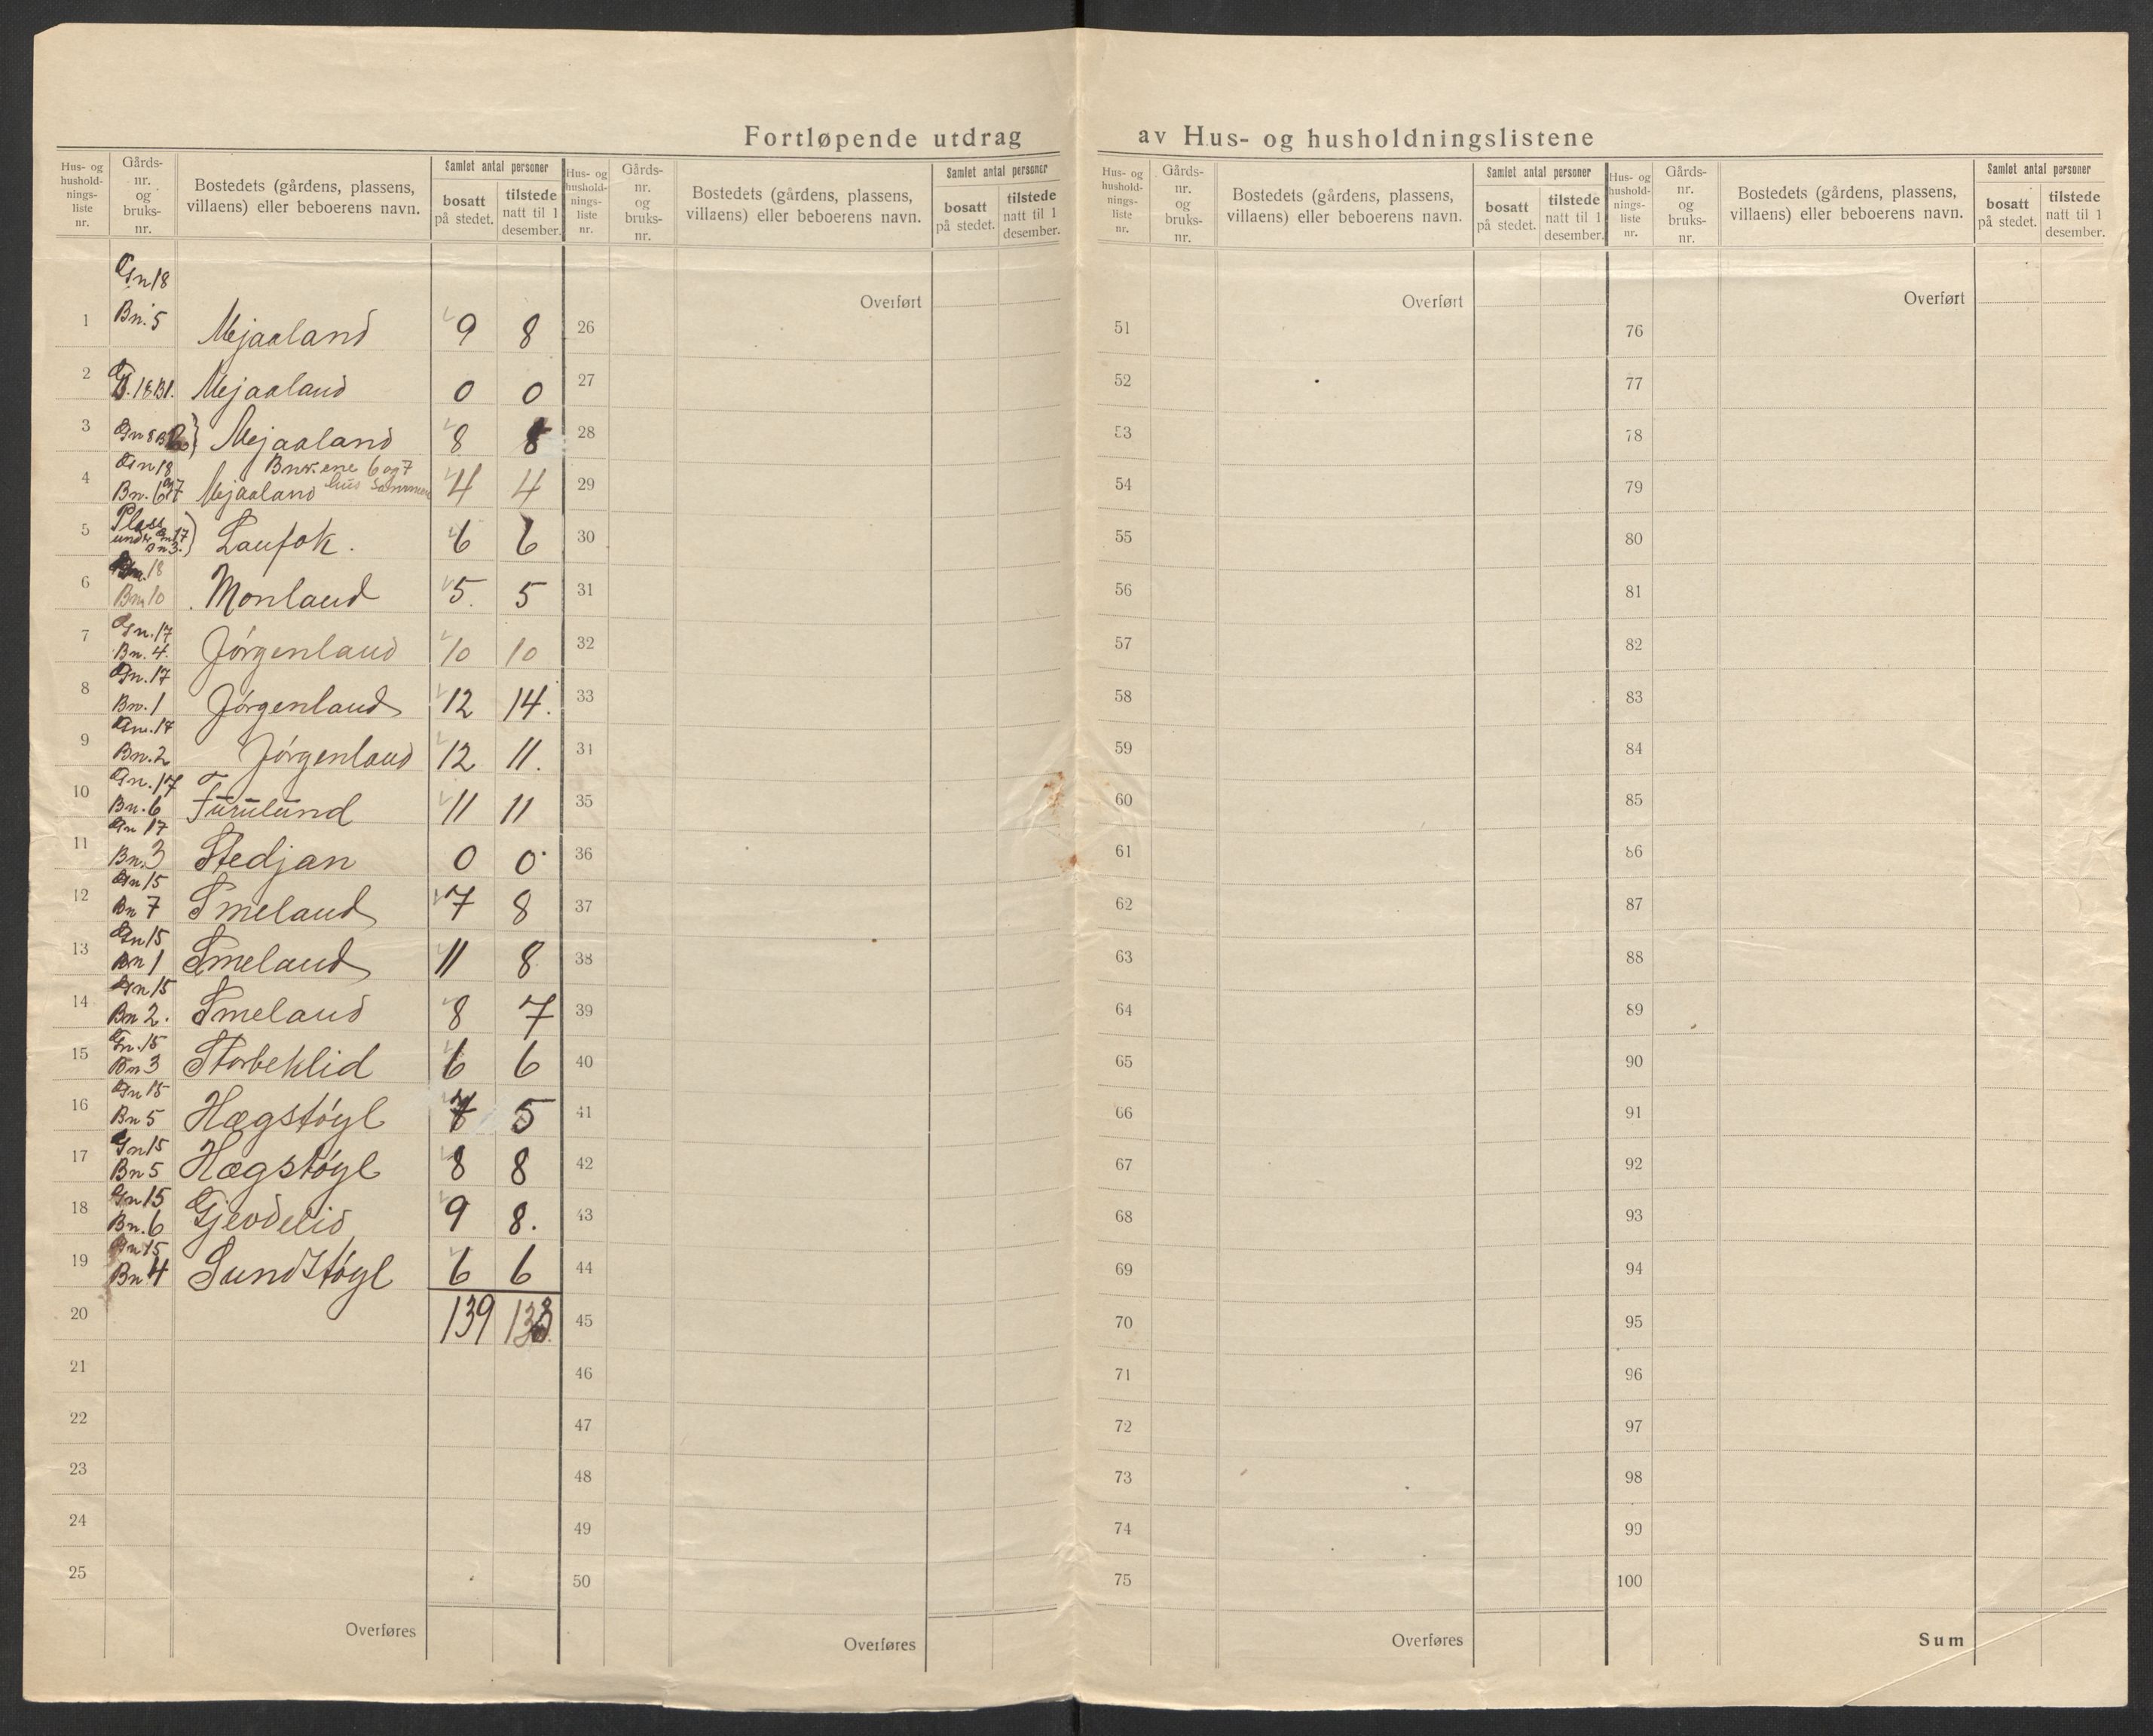 Fortløpende utdrag av Hus- og husholdningslistene
Hus- og hushold-nings-liste nr. Gårds-nr. og bruks-nr. Bostedets (gårdens, plassens, villaens) eller beboerens navn. Samlet antal personer bosatt på stedet. tilstede natt til 1 desember.
Hus- og hushold-nings-liste nr. Gårds-nr. og bruks-nr. Bostedets (gårdens, plassens, villaens) eller beboerens navn. Samlet antal personer bosatt på stedet. tilstede natt til 1 desember.
Hus- og hushold-nings-liste nr. Gårds-nr. og bruks-nr. Bostedets (gårdens, plassens, villaens) eller beboerens navn. Samlet antal personer bosatt på stedet. tilstede natt til 1 desember.
Hus- og hushold-nings-liste nr. Gårds-nr. og bruks-nr. Bostedets (gårdens, plassens, villaens) eller beboerens navn. Samlet antal personer bosatt på stedet. tilstede natt til 1 desember.
Gn 18
1 Bn. 5 Mjaaland 9 8
2 G. 18 B1. Mjaaland 0 0
3 Gn 8 B Mjaaland 8 8
Gn 18 Bnr. ene 6 og 7
4 Bn. 6 og 7 Mjaaland hus sammen 4 4
Plass
5 under Gn 17 Bn 3. Laufok. 6 6
18
6 Bn 10 Monland 5. 5
Gn. 17
7 Bn. 4. Jørgenland 10 10
Gn. 17
8 Bn. 1 Jørgenland 12 14.
Gn. 17
9 Bn. 2 Jørgenland 12 11.
Gn. 17
10 Bn. 6 Furulund 11 11
Gn 17
11 Bn. 3 Stedjan 0 0
Gn 15
12 Bn 7 Smeland 7 8
Gn 15
13 Bn 1 Smeland 11 8
Gn 15
14 Bn 2. Smeland 8 7
Gn. 15
15 Bn 3 Storbeklid 6 6
Gn 15
16 Bn 5 Hægstøyl 7 5
Gn 15
17 Bn 5 Hægstøyl 8 8
Gn 15
18 Bn. 6 Gjevdelid 9 8.
Gn 15
19 Bn 4 Sundstøyl 6 6
20 139 133
21
22
23
24
25
Overføres
Overført
26
27
28
29
30
31
32
33
31
35
36
37
38
39
40
41
42
43
44
45
46
47
48
49
50
Overføres
Overført
51
52
53
54
55
56
57
58
59
60
61
62
63
64
65
66
67
68
69
70
71
72
73
74
75
Overføres
Overført
76
77
78
79
80
81
82
83
84
85
86
87
88
89
90
91
92
93
94
95
96
97
98
99
100
Sum